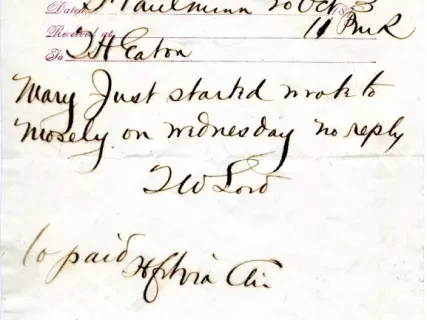 Dated, St Paul minn 20 Oct 3
Received at 11 PmR
To T H Eaton
Mary Just started wrote to
Mosely on wednesday no reply
T W Lord
10 paid via Chi